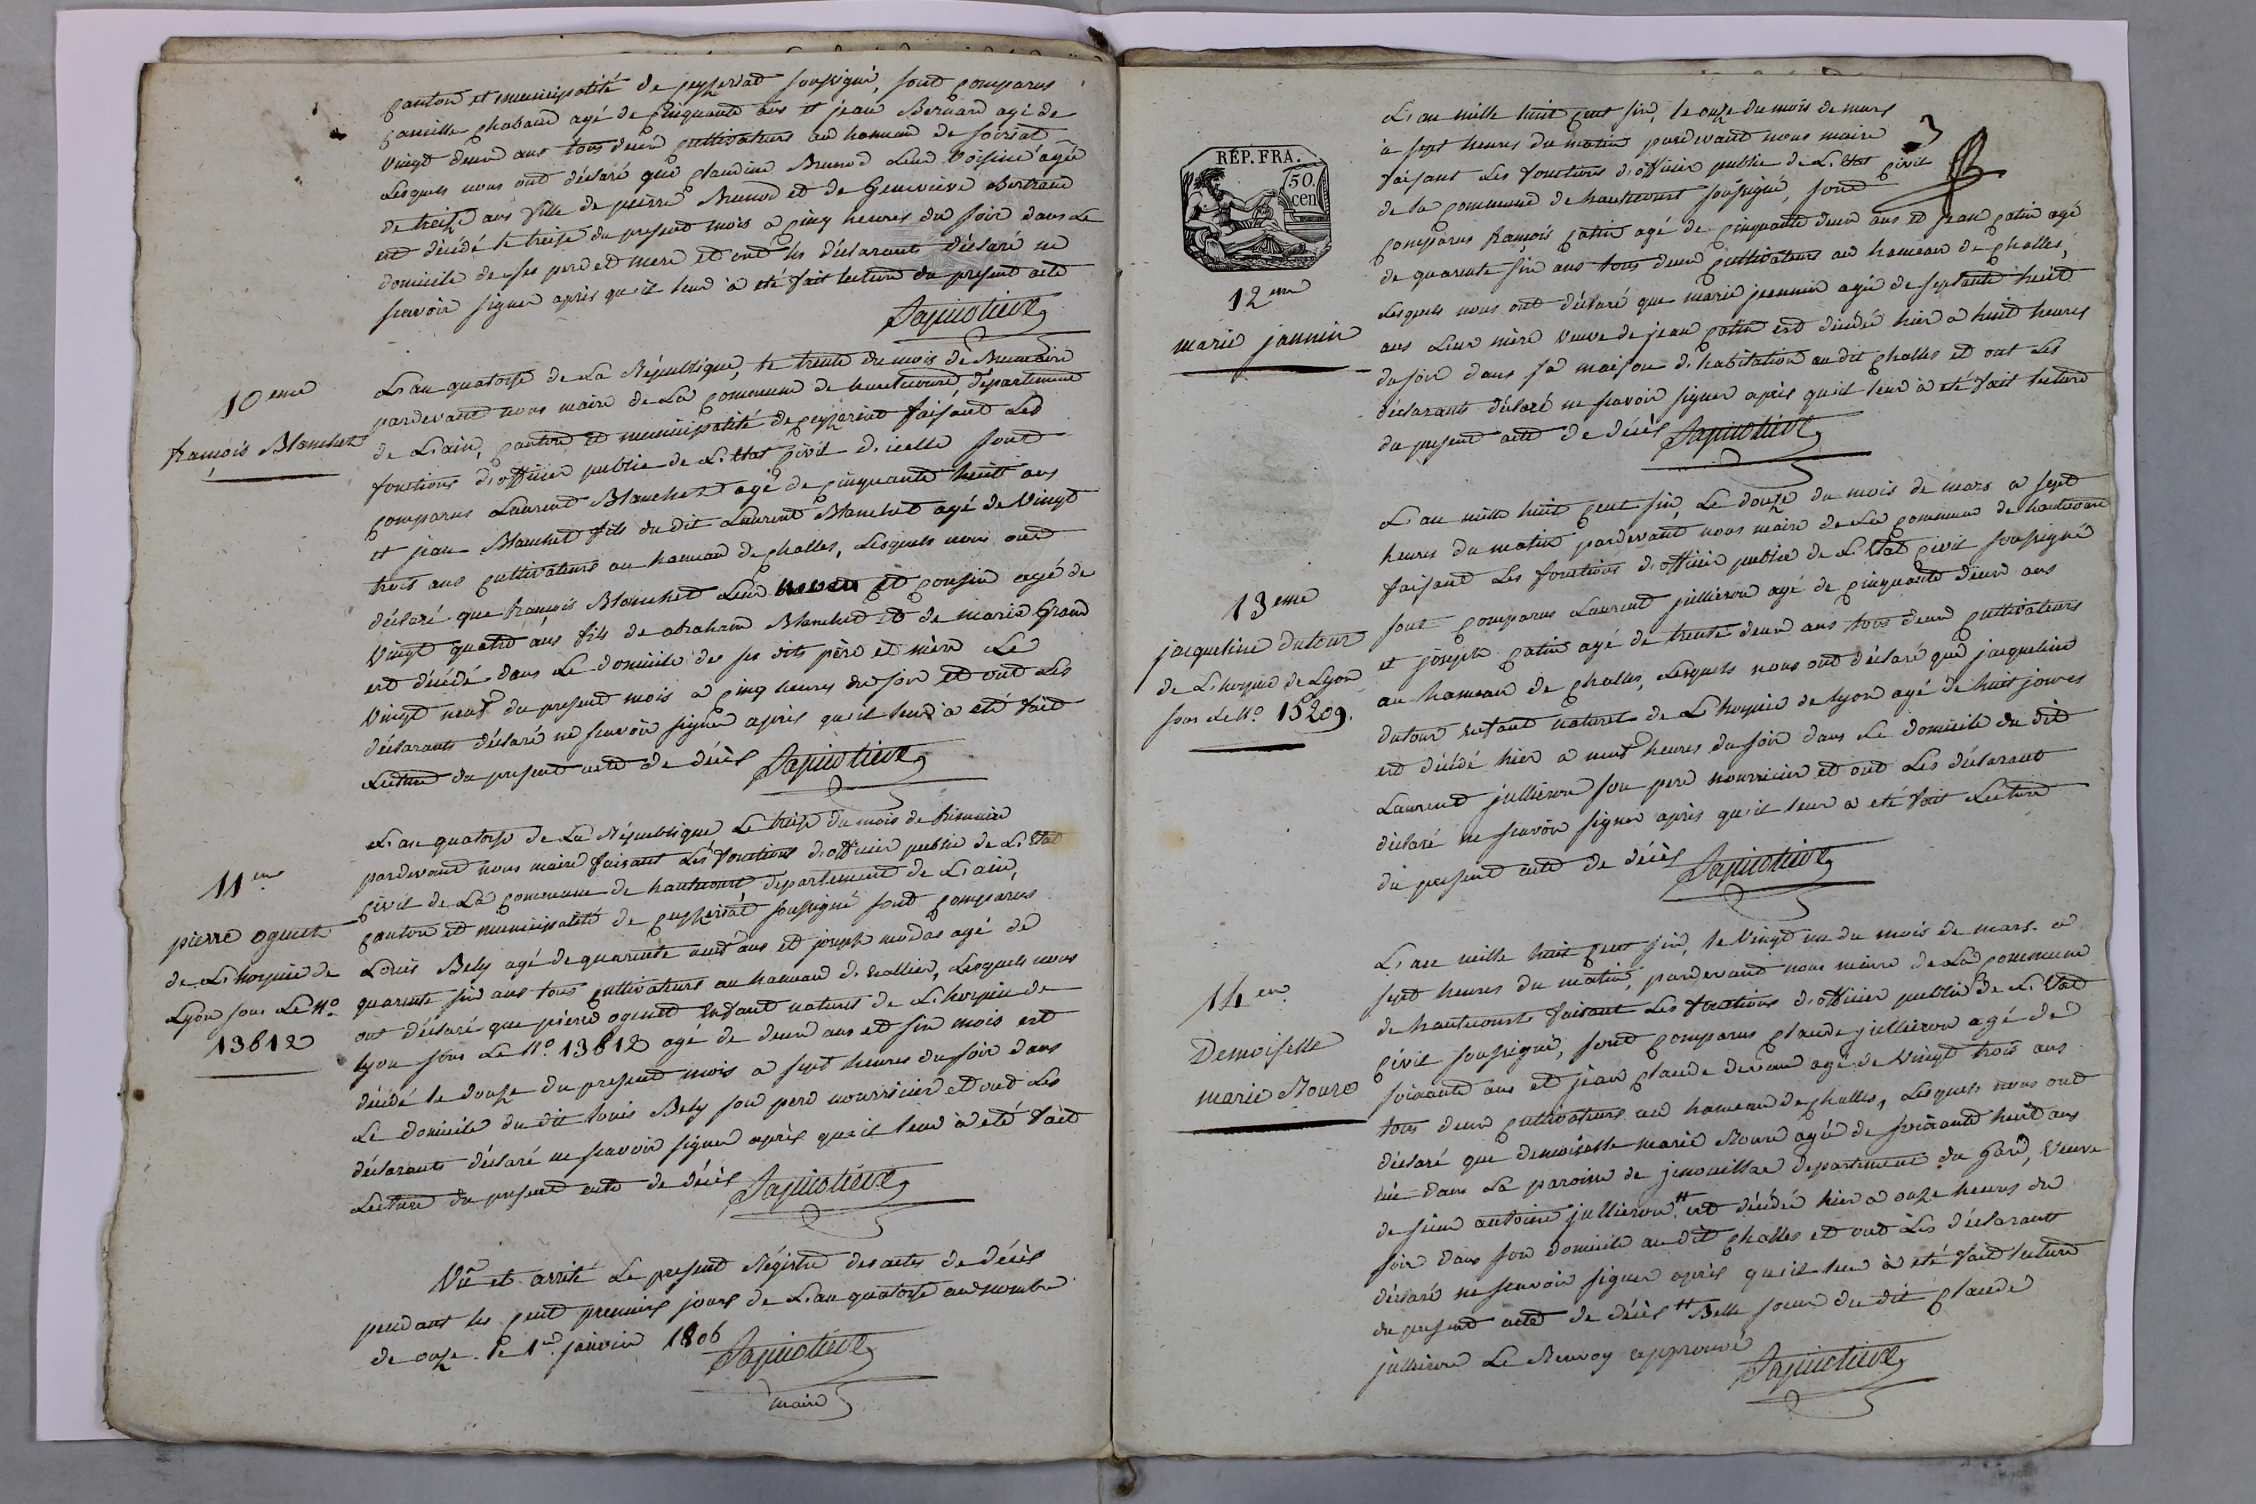 canton et municipalité de ceyzeriat soussigné, sont comparus
camille chabaud agé de cinquante ans et jean Bernard agé de
vingt deux ans tous deux cultivateurs au hameau de
Lesquels nous ont déclaré que claudine Brunod Leur voisine agée
de treize ans fille de pierre Brunod et de Genevieve Bertrand
est décédé le treize du present mois a cinq heures du soir dans Le
domicile de ses pere et mere et ont les déclarants déclaré ne
scavoir signer après qu'il leur à eté fait lecture du present acte
10eme
françois Blanchet
L'an quatorze de La République, le trente du mois de Brumaire
pardevant nous maire de La commune de hautecourt département
de L'ain, canton et municipalité de ceyzeriat faisant Les
fonctions d'officier public de L'Etat civil d'icelle sont
comparus Laurent Blanchet agé de cinquante huit ans
et jean Blanchet fils du dit Laurent Blanchet agé de vingt
trois ans cultivateurs au hameau de challes, Lesquels nous ont
déclaré que françois Blanchet Leur neveu et cousin agé de
vingt quatre ans fils de abraham Blanchet et de marie Grand
est décédé dans Le domicile de ses dits père et mère Le
vingt neuf du present mois a cinq heures du soir et ont Les
déclarants déclaré ne scavoir signer après qu'il leur a eté fait
Lecture du present acte de décès
11em
pierre oguet
de L'hospice de
Lyon sous Le No
13612
L'an quatorze de La République Le treize du mois de frimaire
pardevant nous maire faisant Les fonctions d'officier public de L'Etat
civil de La commune de hautecourt departement de L'ain,
canton et municipalité de ceyzeriat soussigné sont comparus
Louis Bely agé de quarante neuf ans et joseph modas agé de
quarante six ans tous cultivateurs au hameau d'  Lesquels nous
ont déclaré que pierre oguet enfant naturel de L'hospice de
lyon sous Le No 13612 agé de deux ans et six mois est
décédé le douze du present mois a sept heures du soir dans
Le domicile du dit Louis Bely son pere nourricier et ont Les
déclarants déclaré ne scavoir signer après qu'il leur à eté fait
Lecture du present acte de décès
Vu et arrêté Le present Régistre des actes de décès
pendant les cent premiers jours de L'an quatorze au nombre
de onze. le 1er janvier 1806
maire
REP. FRA.
50.
cen
3
12eme
marie jannin
L'an mille huit cent six, le onze du mois de mars
à sept heures du matin pardevant nous maire
faisant Les fonctions d'officier public de L'Etat civil
de la commune de hautecourt soussigné, sont
comparus françois catin agé de cinquante deux ans et jean catin agé
de quarante six ans tous deux cultivateurs au hameau de challes,
Lesquels nous ont déclaré que marie jeannin agée de septante huit
ans Leur mère veuve de jean catin est décédée hier a huit heures
du soir dans sa maison d'habitation au dit challes et ont Les
déclarants déclaré ne scavoir signer après qu'il leur à eté fait lecture
du present acte de décès
13eme
jacqueline dutour
de L'hospice de Lyon
sous Le No 15209.
L'an mille huit cent six, Le douze du mois de mars a sept
heures du matin pardevant nous maire de La commune de hautecourt
faisant Les fonctions d'officier public de L'Etat civil soussigné
sont comparus Laurent jullieron agé de cinquante deux ans
et joseph catin agé de trente deux ans tous deux cultivateurs
au hameau de challes, Lesquels nous ont déclaré que jacqueline
dutour enfant naturel de L'hospice de lyon agé de huit jours
est décédé hier a neuf heures du soir dans Le domicile du dit
Laurent jullieron son pere nourricier et ont Les déclarant
déclaré ne scavoir signer après qu'il leur a eté fait Lecture
du present acte de décès
14em
Demoiselle
marie Roure
L'an mille huit cent six, le vingt un du mois de mars. a
sept heures du matin, pardevant nous maire de La commune
de hautecourt faisant Les fonctions d'officier public de L'Etat
civil soussigné, sont comparus claude jullieron agé de
soixante ans et jean claude devaux agé de vingt trois ans
tous deux cultivateurs au hameau de challes, Lesquels nous ont
déclaré que demoiselle marie Roure agée de soixante huit ans
née dans La paroisse de jenouillac departement du Gard, veuve
de sieur antoine jullieron # est décédée hier a onze heures du
soir dans son domicile au dit challes et ont Les déclarants
déclaré ne scavoir signer après qu'il leur à eté fait lecture
du present acte de décès # Belle soeur du dit claude
jullieron Le Renvoy approuvé